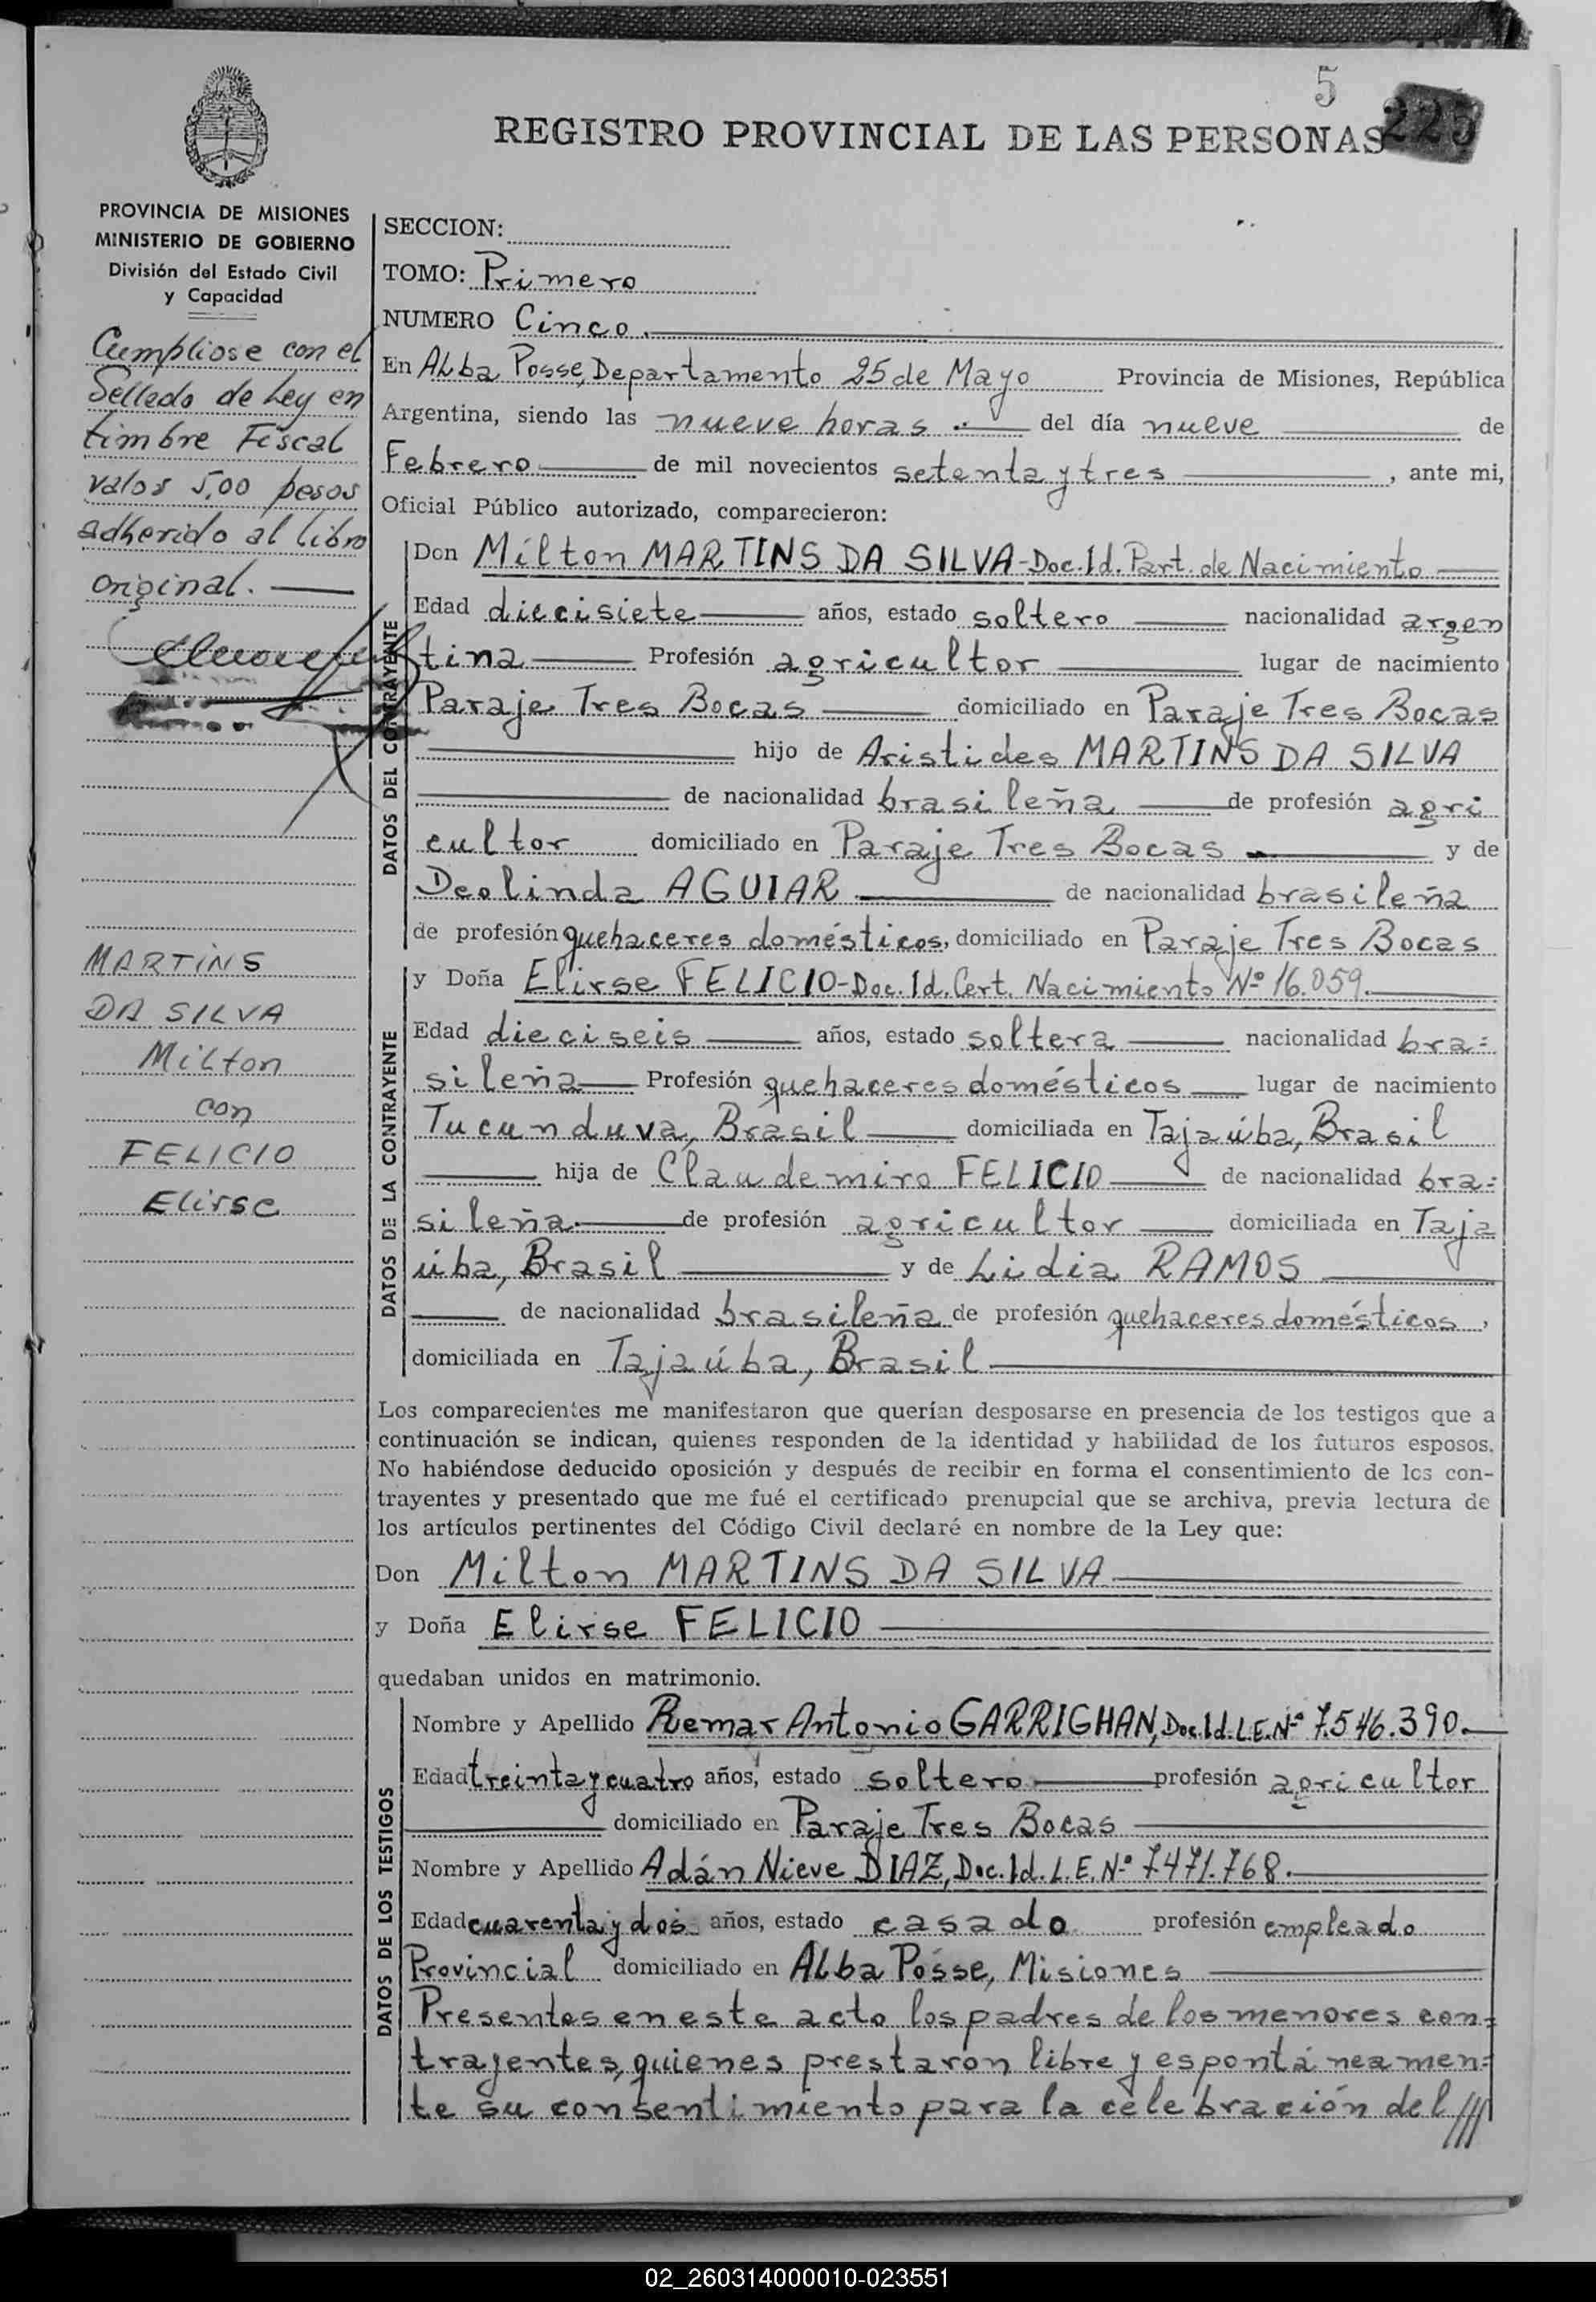 5
225
REGISTRO PROVINCIAL DE LAS PERSONAS
PROVINCIA DE MISIONES
MINISTERIO DE GOBIERNO
División del Estado Civil
y Capacidad
Cumpliose con el
Sellado de Ley en
timbre Fiscal
valor 5,00 pesos
adherido al libro
original.
MARTINS
DA SILVA
Milton
con
FELICIO
Elirse
SECCION:
TOMO: Primero
NUMERO Cinco.
En Alba Posse, Departamento 25 de Mayo Provincia de Misiones, República
Argentina, siendo las nueve horas del día nueve de
Febrero de mil novecientos setenta y tres, ante mi,
Oficial Público autorizado, comparecieron:
DATOS DEL CONTRAYENTE
Don Milton MARTINS DA SILVA-Doc. Id. Part. de Nacimiento
Edad diecisiete años, estado soltero nacionalidad argen
tina Profesión agricultor lugar de nacimiento
Paraje Tres Bocas domiciliado en Paraje Tres Bocas
hijo de Aristides MARTINS DA SILVA
de nacionalidad brasileña de profesión agri
cultor domiciliado en Paraje Tres Bocas y de
Deolinda AGUIAR de nacionalidad brasileña
de profesión quehaceres domésticos, domiciliado en Paraje Tres Bocas
DATOS DE LA CONTRAYENTE
y Doña Elirse FELICIO-Doc. Id. Cert. Nacimiento Nº 16.059.
Edad dieciseis años, estado soltera nacionalidad bra=
sileña Profesión quehaceres domésticos lugar de nacimiento
Tucunduva, Brasil domiciliada en Tajaúba, Brasil
hija de Claudemiro FELICIO de nacionalidad bra=
sileña de profesión agricultor domiciliada en Taja
úba, Brasil y de Lidia RAMOS
de nacionalidad brasileña de profesión quehaceres domésticos,
domiciliada en Tajaúba, Brasil
Los comparecientes me manifestaron que querían desposarse en presencia de los testigos que a
continuación se indican, quienes responden de la identidad y habilidad de los futuros esposos.
No habiéndose deducido oposición y después de recibir en forma el consentimiento de los con-
trayentes y presentado que me fué el certificado prenupcial que se archiva, previa lectura de
los artículos pertinentes del Código Civil declaré en nombre de la Ley que:
Don Milton MARTINS DA SILVA
y Doña Elirse FELICIO
quedaban unidos en matrimonio.
DATOS DE LOS TESTIGOS
Nombre y Apellido Remar Antonio GARRIGHAN, Doc. Id. L.E. Nº 7.546.390.
Edad treinta y cuatro años, estado soltero profesión agricultor
domiciliado en Paraje Tres Bocas
Nombre y Apellido Adán Nieve DIAZ, Doc. Id. L.E. Nº 7.471.768.
Edad cuarenta y dos años, estado casado profesión empleado
Provincial domiciliado en Alba Posse, Misiones
Presentes en este acto los padres de los menores con=
trayentes, quienes prestaron libre y espontáneamen=
te su consentimiento para la celebración del ///
02_260314000010-023551